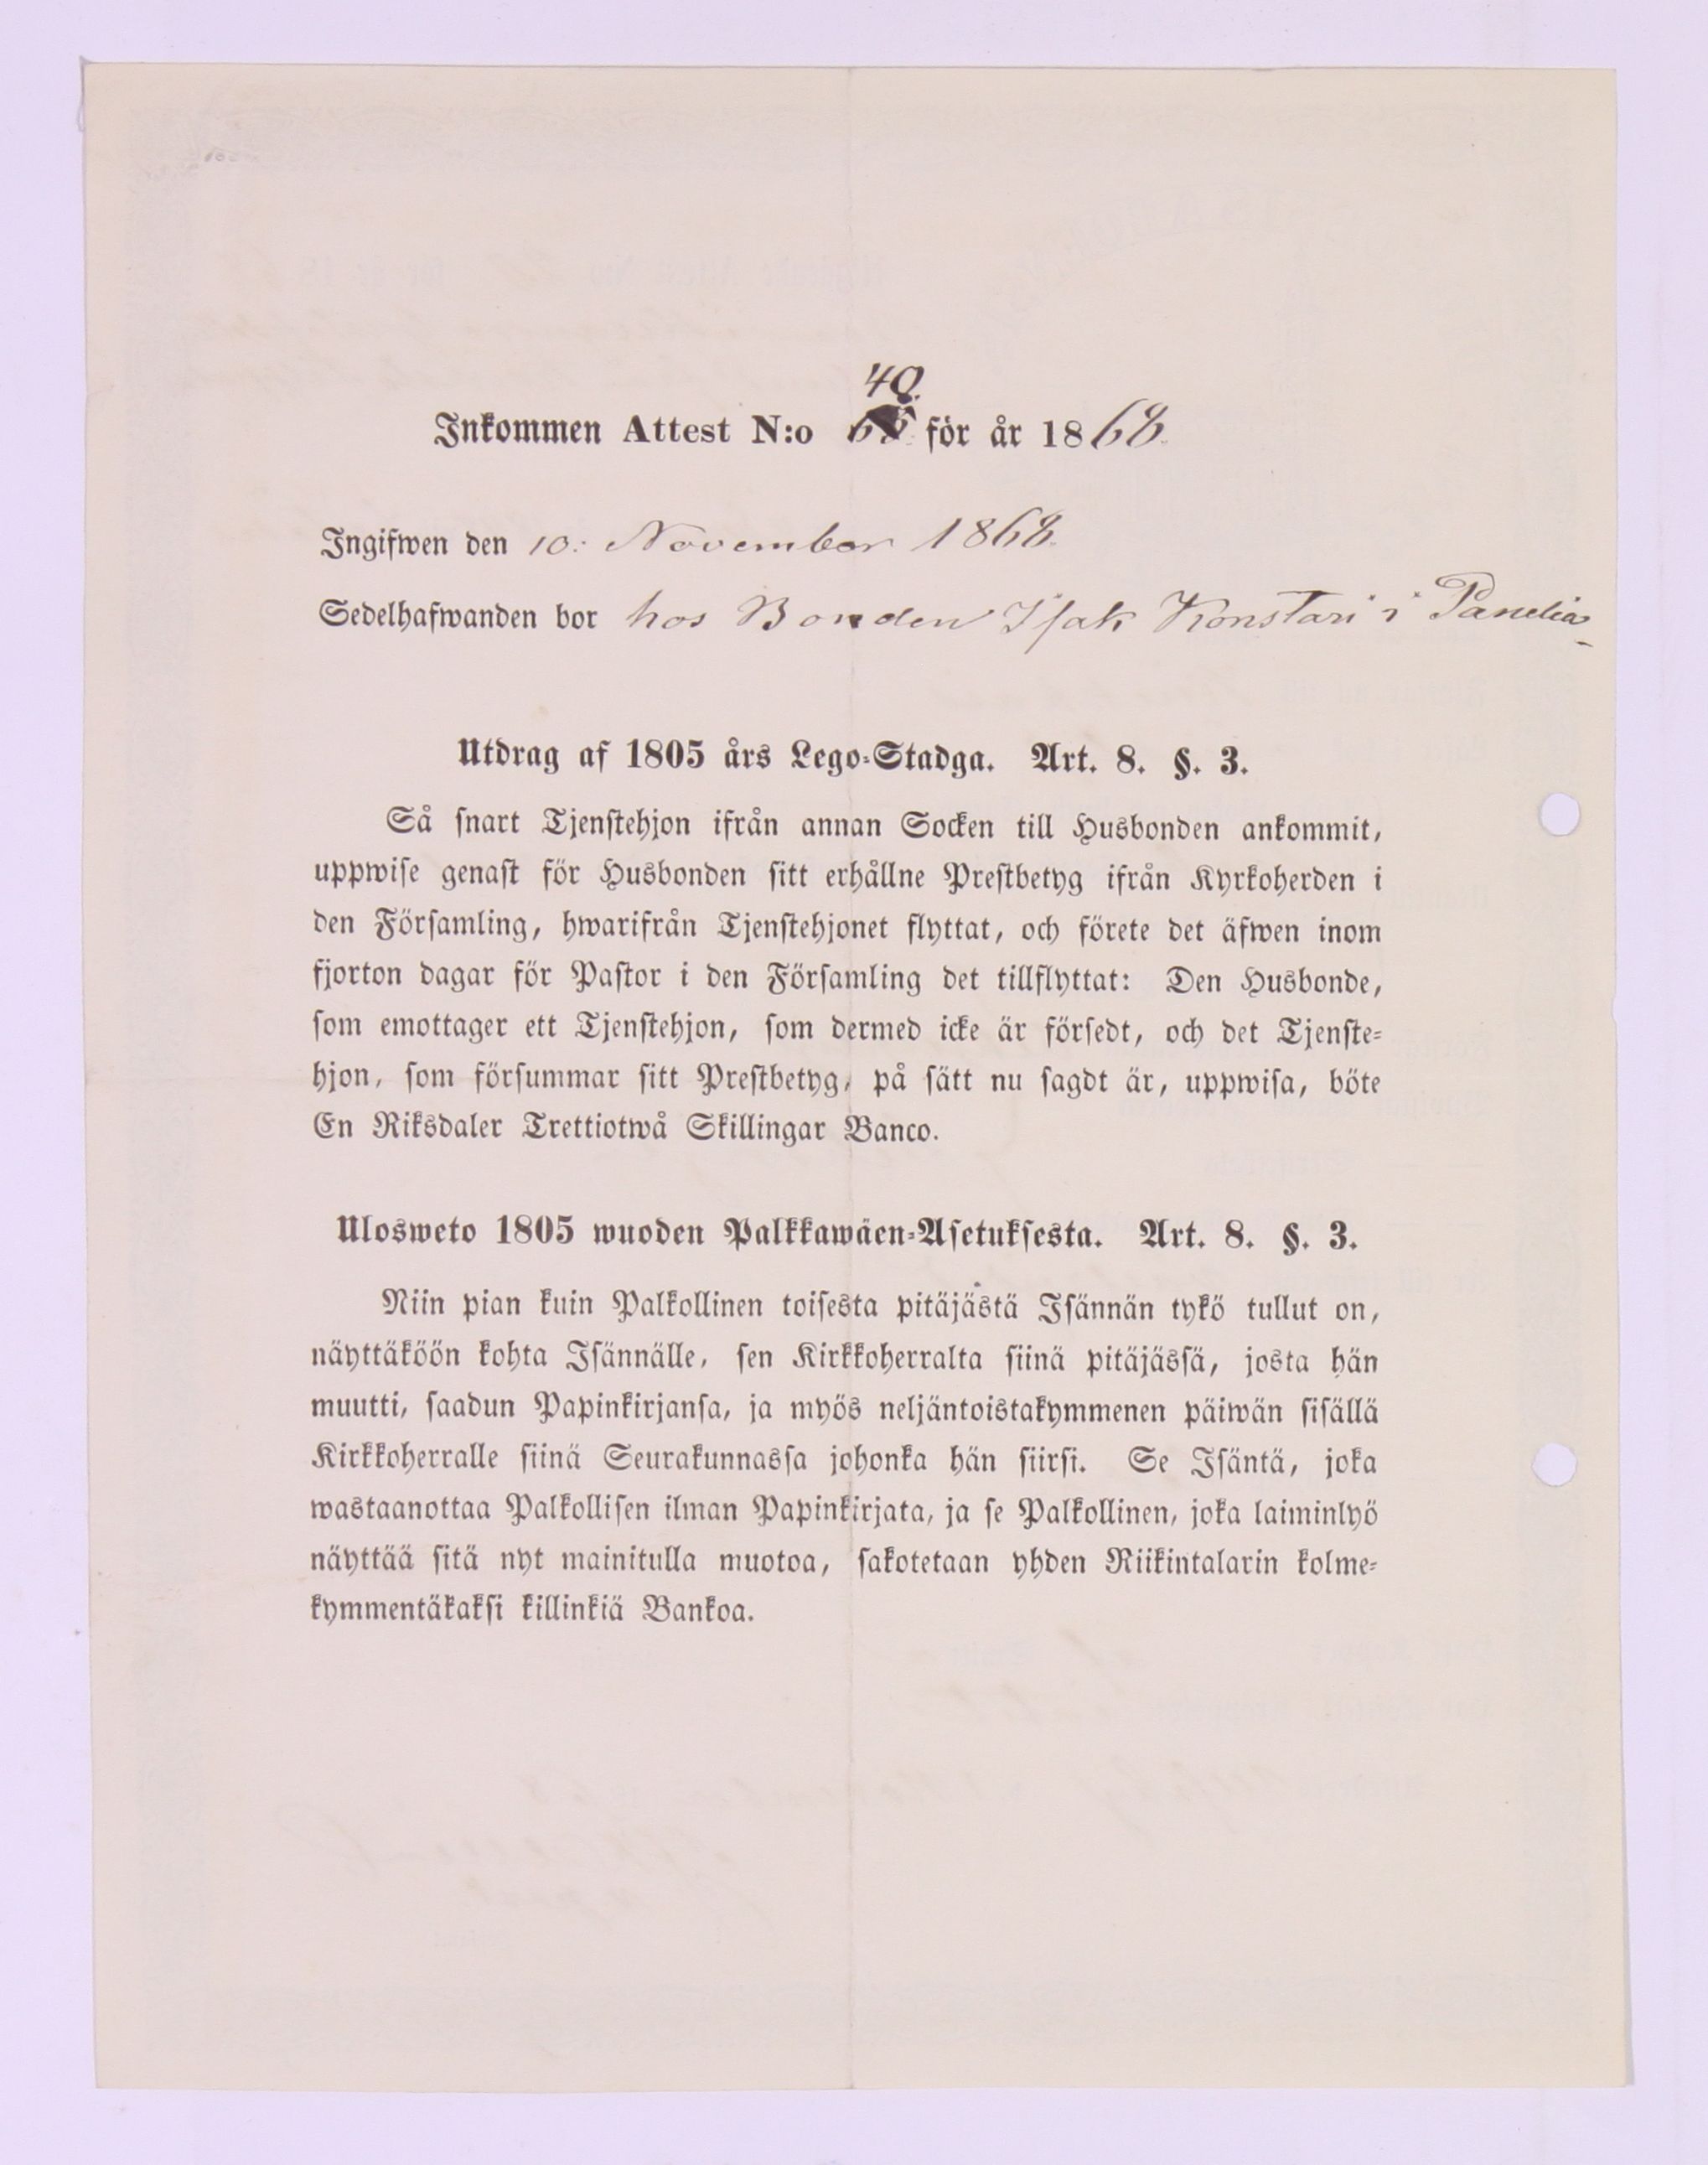 40.
Inkommen Attest N:o för år 1868.
Ingifwen den 10: November 1868.
Sedelhafwanden bor hos Bonden Isak Konstari i Panelia
Utdrag af 1805 års Lego-Stadga. Art. 8. §. 3.
Så snart Tjenstehjon ifrån annan Socken till Husbonden ankommit,
uppwise genast för Husbonden sitt erhållne Prestbetyg ifrån Kyrkoherden i
den Församling, hwarifrån Tjenstehjonet flyttat, och förete det äfwen inom
fjorton dagar för Pastor i den Församling det tillflyttat: Den Husbonde,
som emottager ett Tjenstehjon, som dermed icke är försedt, och det Tjenste-
hjon, som försummar sitt Prestbetyg, på sätt nu sagdt är, uppwisa, böte
En Riksdaler Trettiotwå Skillingar Banco.
Ulosweto 1805 wuoden Palkkawäen-Asetuksesta. Art. 8. §. 3.
Niin pian kuin Palkollinen toisesta pitäjästä Isännän tykö tullut on,
näyttäköön kohta Isännälle, sen Kirkkoherralta siinä pitäjässä, josta hän
muutti, saadun Papinkirjansa, ja myös neljäntoistakymmenen päiwän sisällä
Kirkkoherralle siinä Seurakunnassa johonka hän siirsi. Se Isäntä, joka
wastaanottaa Palkollisen ilman Papinkirjata, ja se Palkollinen, joka laiminlyö
näyttää sitä nyt mainitulla muotoa, sakotetaan yhden Riikintalarin kolme-
kymmentäkaksi killinkiä Bankoa.